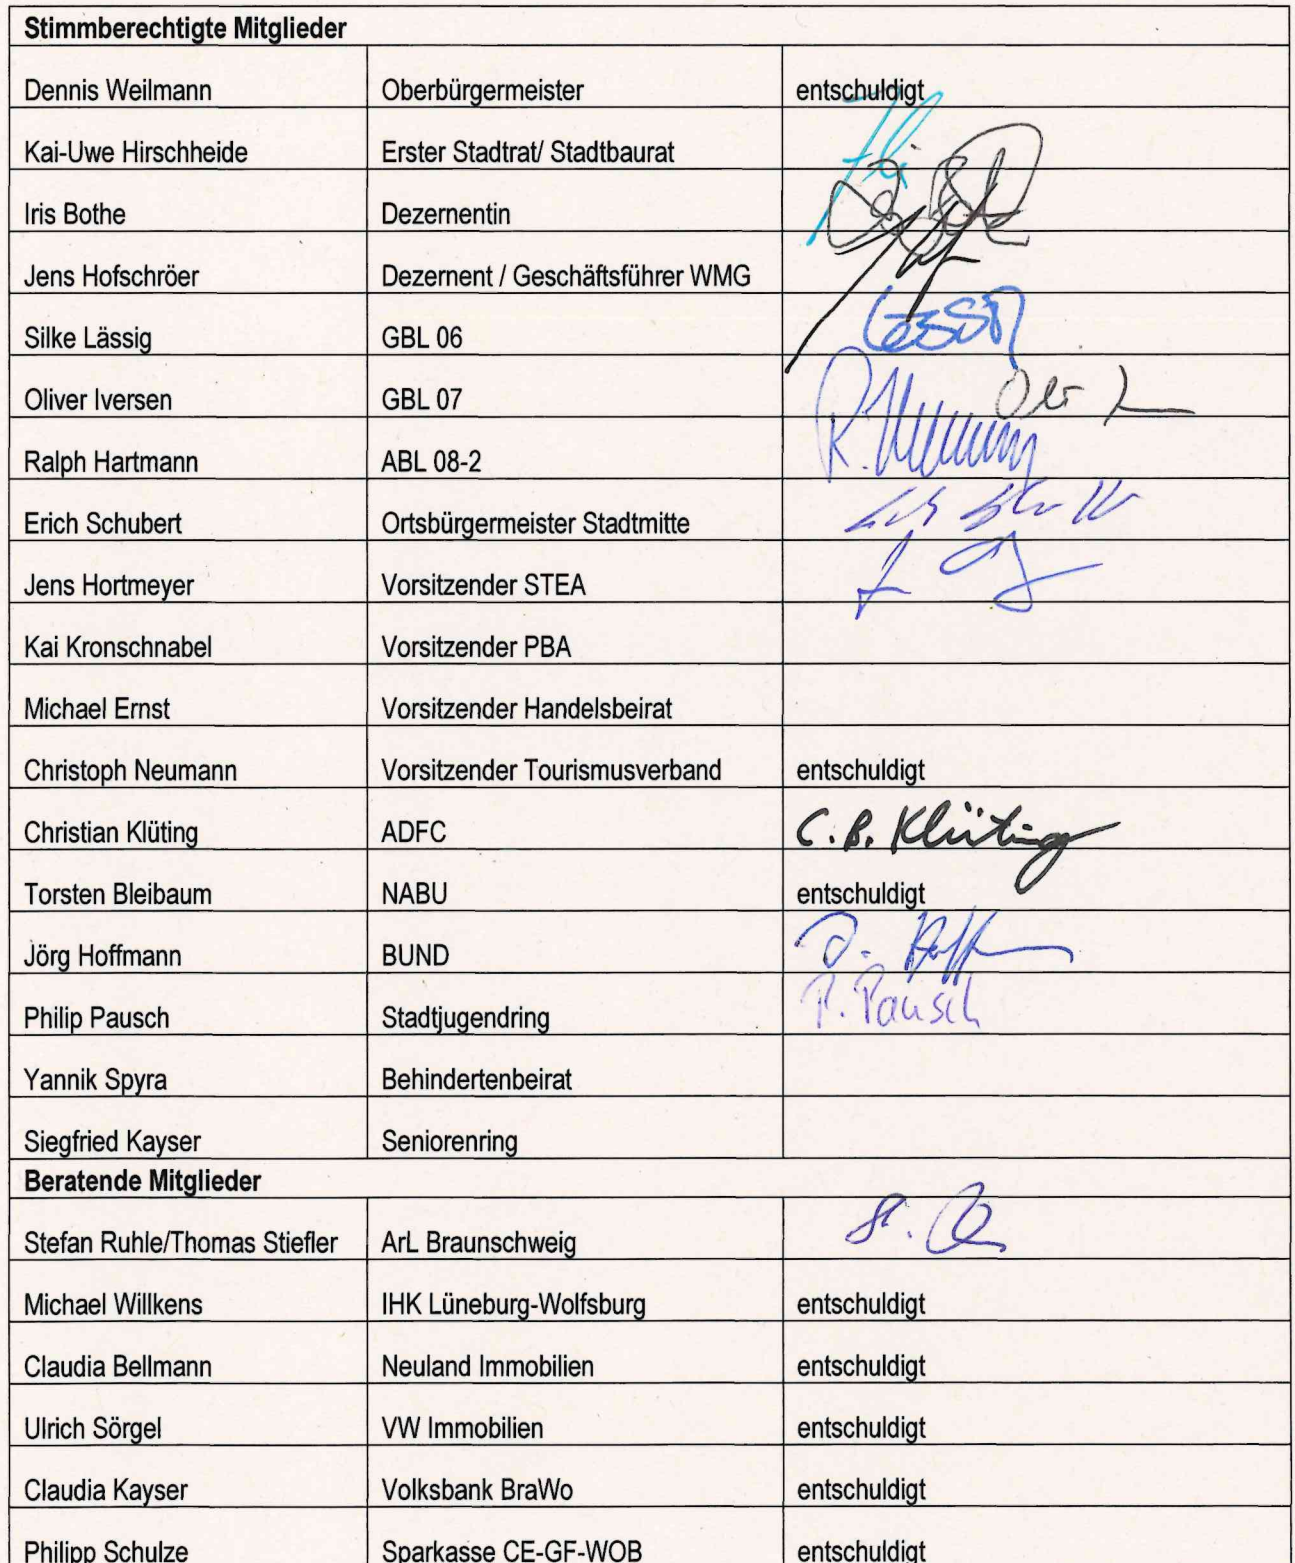 Stimmberechtigte Mitglieder
Dennis Weilmann Oberbürgermeister entschuldigt
Kai-Uwe Hirschheide Erster Stadtrat/ Stadtbaurat
Iris Bothe Dezernentin
Jens Hofschröer Dezernent / Geschäftsführer WMG
Silke Lässig GBL 06
Oliver Iversen GBL 07
Ralph Hartmann ABL 08-2
Erich Schubert Ortsbürgermeister Stadtmitte
Jens Hortmeyer Vorsitzender STEA
Kai Kronschnabel Vorsitzender PBA
Michael Ernst Vorsitzender Handelsbeirat
Christoph Neumann Vorsitzender Tourismusverband entschuldigt
Christian Klüting ADFC C.B. Klüting
Torsten Bleibaum NABU entschuldigt
Jörg Hoffmann BUND
Philip Pausch Stadtjugendring P. Pausch
Yannik Spyra Behindertenbeirat
Siegfried Kayser Seniorenring
Beratende Mitglieder
Stefan Ruhle/Thomas Stiefler ArL Braunschweig
Michael Willkens IHK Lüneburg-Wolfsburg entschuldigt
Claudia Bellmann Neuland Immobilien entschuldigt
Ulrich Sörgel VW Immobilien entschuldigt
Claudia Kayser Volksbank BraWo entschuldigt
Philipp Schulze Sparkasse CE-GF-WOB entschuldigt